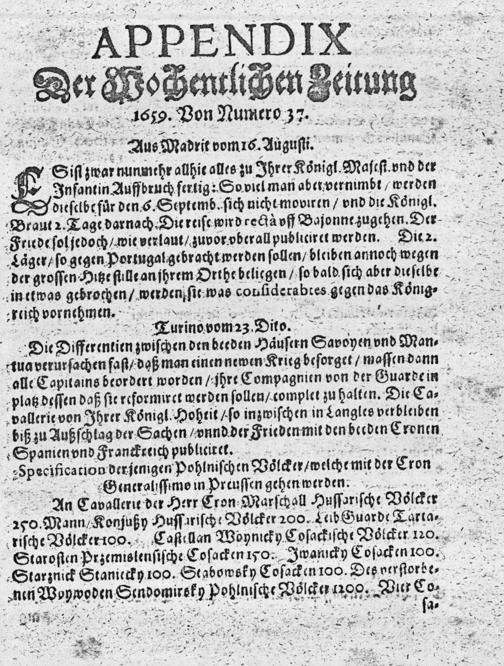 APPENDIX
Der Wochentlichen Zeitung
1659. Von Numero 37.
Aus Madrit vom 16. Augusti.
ES ist zwar nunmehr allhie alles zu Ihrer Königl. Majest. vnd der
Infantin Auffbruch fertig: So viel man aber vernimbt / werden
dieselbe für den 6. Septemb. sich nicht moviren / vnd die Königl.
Braut 2. Tage darnach. Die reise wird rectà vff Bajonne zugehen. Der
Friede sol jedoch / wie verlaut / zuvor vberall publiciret werden. Die 2.
Läger / so gegen Portugal gebracht werden sollen / bleiben annoch wegen
der grossen Hitze stille an jhrem Orthe beliegen / so bald sich aber dieselbe
in etwas gebrochen / werden sie was considerables gegen das König-
reich vornehmen.
Turino vom 23. Dito.
Die Differentien zwischen den beeden Häusern Savoyen vnd Man-
tua verursachen fast / daß man einen newen Krieg besorget / massen dann
alle Capitains beordert worden / jhre Compagnien von der Guarde in
platz dessen daß sie reformiret werden sollen / complet zu halten. Die Ca-
vallerie von Ihrer Königl. Hoheit / so inzwischen in Langles verbleiben
biß zu Außschlag der Sachen / vnnd der Frieden mit den beeden Cronen
Spanien vnd Franckreich publiciret.
Specification der jenigen Pohlnischen Völcker / welche mit der Cron
Generalissimo in Preussen gehen werden.
An Cavallerie der Herr Cron Marschall Hussarische Völcker
250. Mann / Konjußy Hussarische Völcker 200. Leib Guarde Tarta-
rische Völcker 100. Castellan Woynicky Cosackische Völcker 120.
Starosten Przemislensische Cosacken 150. Iwanicky Cosacken 100.
Starznick Staniecky 100. Stabowsky Cosacken 100. Des verstorbe-
nen Woywoden Sendomirsky Pohlnische Völcker 1200. Vier Co-
sa-